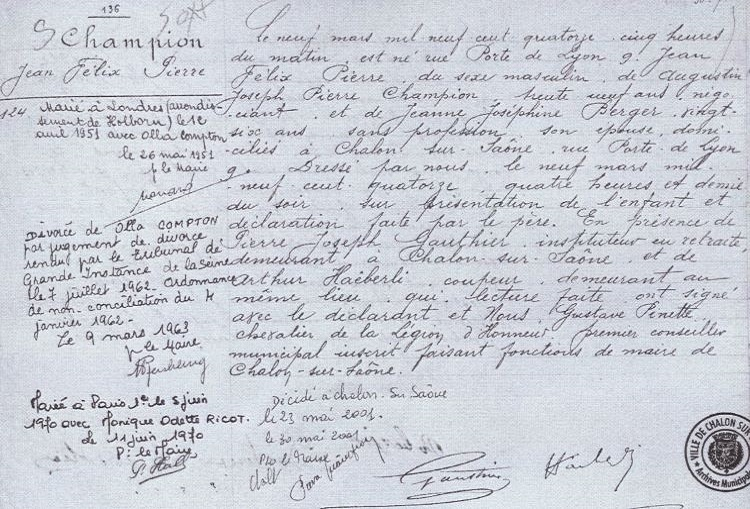 136
Champion
Jean Félix Pierre
124
Marié à Londres (arrondis-
sement de Holborn) le 12
avril 1951 avec Olla Compton
le 26 mai 1951
p le Maire
Divorcé de Olla COMPTON
par jugement de divorce
rendu par le tribunal de
Grande Instance de la Seine
le 7 juillet 1962. Ordonnance
de non conciliation du 4
janvier 1962-
Le 9 mars 1963
p le Maire
Marié à Paris 1er le 5 juin
1970 avec Monique Odette RICOT.
le 11 juin 1970
P. le Maire
Le neuf mars mil neuf cent quatorze cinq heures
du matin est né rue Porte de Lyon 9. Jean
Félix Pierre, du sexe masculin, de Augustin
Joseph Pierre Champion trente neuf ans, négo
ciant, et de Jeanne Joséphine Berger, vingt-
six ans sans profession, son épouse, domi-
ciliés à Chalon-sur-Saône, rue Porte de Lyon
9. Dressé par nous, le neuf mars mil
neuf cent quatorze, quatre heures et demie
du soir, sur présentation de l'enfant et
déclaration faite par le père. En présence de
Pierre Joseph Gauthier, instituteur en retraite
demeurant à Chalon-sur-Saône, et de
Arthur Haëberli, coupeur, demeurant au
même lieu, qui, lecture faite, ont signé
avec le déclarant et Nous, Gustave Pinette
chevalier de la Légion d'Honneur, premier conseiller
municipal inscrit faisant fonctions de maire de
Chalon-sur-Saône.
Décédé à Chalon-Sur Saône
le 23 mai 2001.
le 30 mai 2001
P/o le Maire
VILLE DE CHALON SUR
Archives Municipales